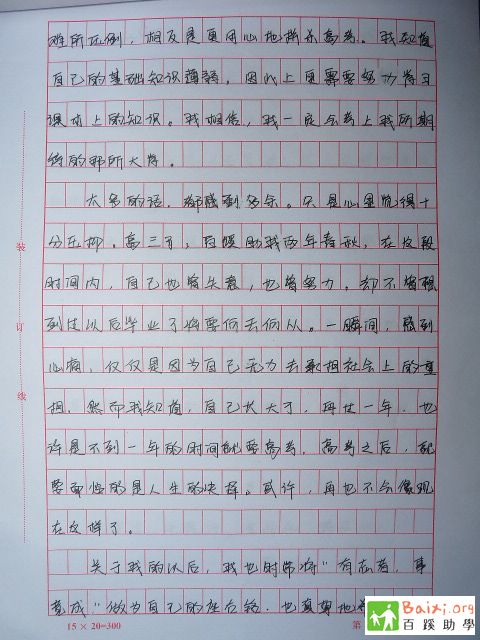 难所压倒，相反是更用心地备考高考。我知道
自己的基础知识薄弱，因此上更需要努力学习
课本上的知识。我相信，我一定会考上我所期
待的那所大学。
太多的话，都感到多余。只是心里觉得十
分压抑。高三了，百暖助我两年春秋，在这段
时间内，自己也曾失意，也曾努力。却不曾想
到过以后毕业了将要何去何从。一瞬间，感到
心痛，仅仅是因为自己无力去承担社会上的重
担。然而我知道，自己长大了，再过一年，也
许是不到一年的时间就要高考，高考之后，就
要面临的是人生的抉择。或许，再也不会像现
在这样了。
关于我的以后，我也时常将“有志者，事
竟成”做为自己的座右铭，也真真地
装
订
线
15 × 20=300
第
Baixi.org
百蹊助學